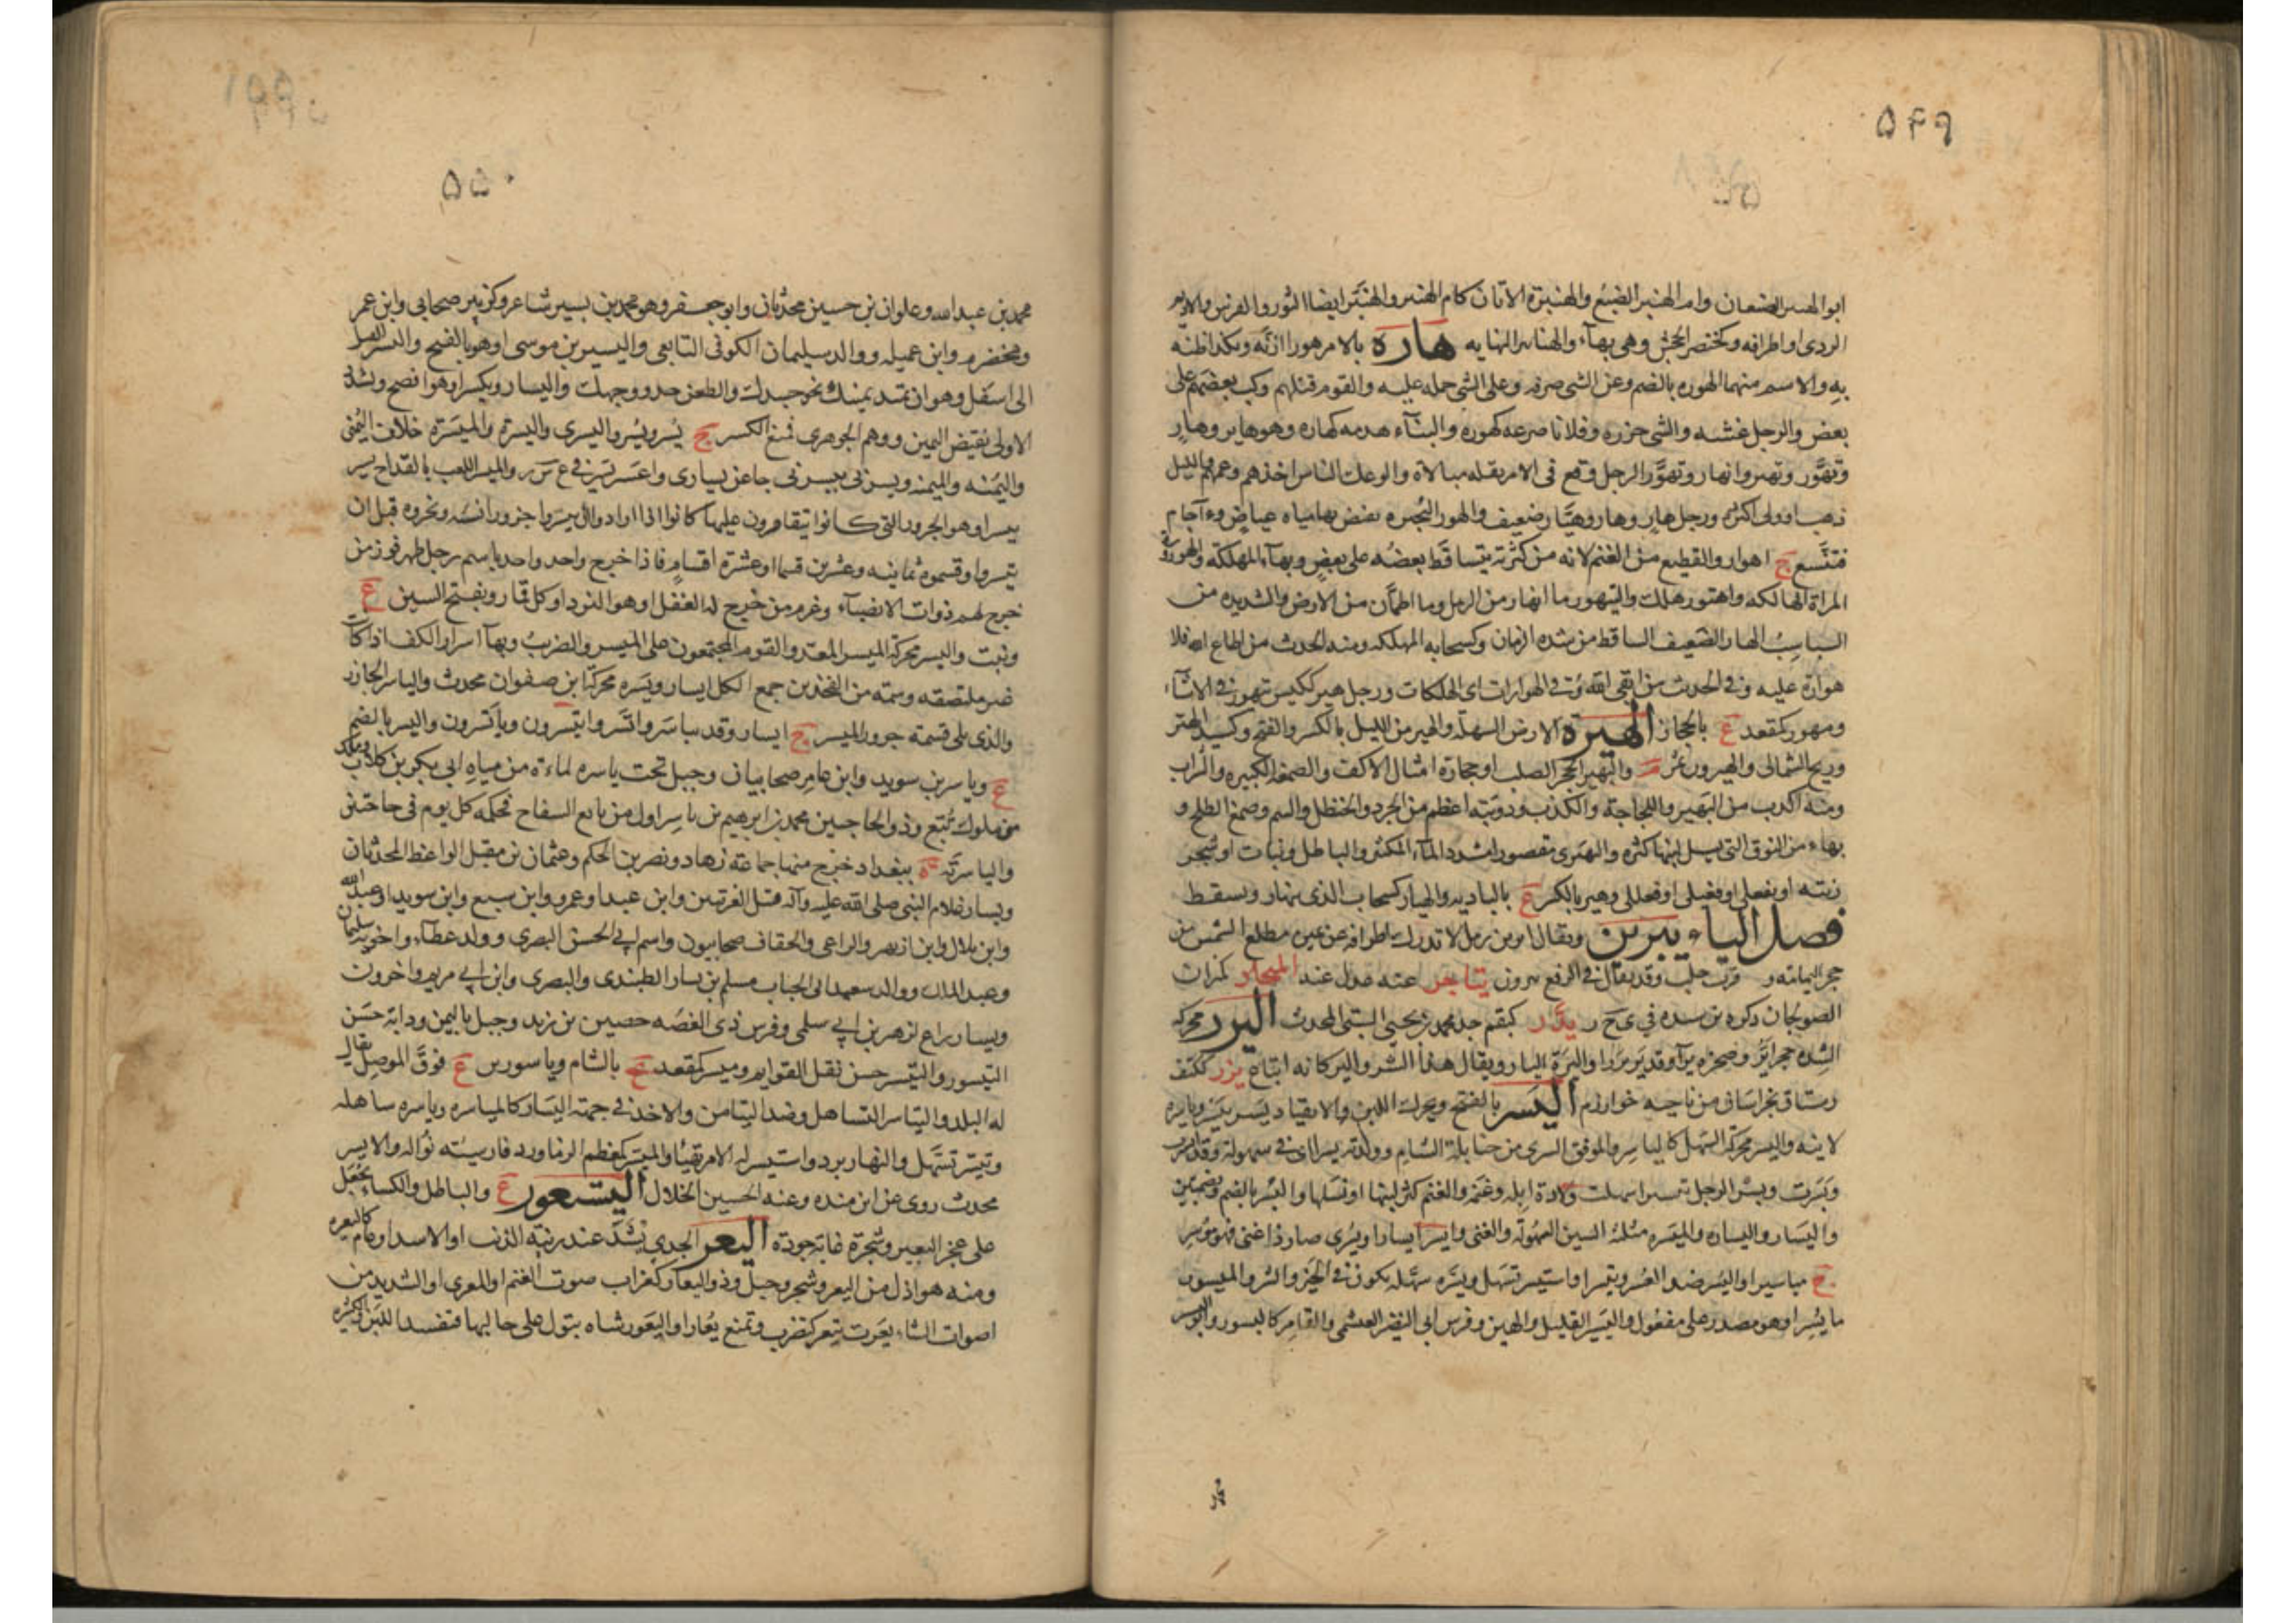 ۵۴۹
ابو الهنبر الضبعان وام الهنبر الضبع والهنبرة الاتان كام الهنبر والهنبر ايضا الثور والفرس والاديم
الردى او اطرافه وكخنصر الجحش وهى بهاء والهنابر النهابير هاره بالامر هورا ازنه وبكذا ظنه
به والاسم منهما الهوره بالضم وعن الشى صرفه وعلى الشى حمله عليه والقوم قتلهم وكب بعضهم على
بعض والرجل غشه والشى حزره وفلانا صرعه كهوره والبناء هدمه فهار وهو هاير وهار
وتهور وتهير وانهار وتهور الرجل وقع فى الامر بقله مبالاة والوعك الناس اخذهم وعمهم والليل
ذهب او ولى اكثره ورجل هار وهار وهيار ضعيف والهور البحيره يفيض بها مياه غياض وآجام
فتتسع ج اهوار والقطيع من الغنم لانه من كثرته يتساقط بعضه على بعض وبهاء المهلكة والهورورة
المراة الهالكه واهتور هلك والتيهور ما انهار من الرمل وما اطمان من الارض والشديد من
السباسب الهار الضعيف الساقط من شده الزمان وكسحابه المهلكه ومنه الحدث من اطاع الله فلا
هوارة عليه وفى الحدث من اتقى الله وقى الهوارات اى الهلكات ورجل هير ككيس تهور فى الاشياء
ومهور كمقعد ع بالحجاز الهيرة الارض السهلة والهير من الليل بالكسر والفتح وكسيد الهتر
وريح الشمالى والهيرون تمر م واليهير الحجر الصلب او حجارة امثال الاكف والصمغة الكبيره والسراب
ومنه اكذب من اليهير واللجاجة والكذب ودويبة اعظم من الجرذ والحنظل والسم وصمغ الطلح و
بهاء من النوق التى يسيل لبنها كثره واليهيرى مقصور اشدد الماء الكثير والباطل ونبات او شجر
زنته او يفعلى او فعيلى او فعللى وهير بالكسر ع بالباديه والهيار كسحاب الذى ينهار ويسقط
فصل الياء يبرين ويقال ابرين رمل لا تدرك اطرافه عن يمين مطلع الشمس من
حجر اليمامة و قرب حلب وقد يقال فى الرفع يبرون يتاجر عنه عدل عند الميجار كمنزان
الصولجان ذكره بن سيده فى ى ج ر يدر كبقم جد محمد بن يحيى البستى المحدث اليرر محركه
الشده حجر اير وصخره يرآ وقد ير يررا واليرة النار ويقال هذا الشر واليركانه اتباع يزر ككتف
رستاق بخراسان من ناحيه خوارزم اليسر بالفتح ويحرك اللين والانقياد يسر ييسر وياسره
لاينه واليسر محركة السهل كالياسر والموفق السرى من حنابلة الشام وولدته يسرا اى فى سهولة وقد ايسرت
ويسرت ويسر الرجل تيسيرا سهلت ولادة ابله وغنمه والغنم كثر لبنها او نسلها واليسر بالضم وبضمتين
واليسار واليساره والميسره مثلثة السين السهولة والغنى وايسر ايسارا ويسرى صار ذا غنى فهو موسر
ج مياسير او اليسر ضد العسر وتيسر واستيسر تسهل ويسره سهله يكون فى الخير والشر والميسور
ما يسر او هو مصدر على مفعول واليسير القليل والهين وفرس ابى النضير العبشمى والقامر كاليسور وابو اليسر
۵۵۰
محمد بن عبد الله وعلوان بن حسين محدثان وابو جعفر وهو محمد بن يسير شاعر وكزبير صحابى وابن عمر
ومخضرم وابن عميله ووالد سليمان الكوفى التابعى واليسير بن موسى او هو بالفتح واليسر الفتل
الى اسفل وهو ان تمد يمينك نحو جسدك والطعن حذو وجهك واليسار ويكسر او هو افصح وتشدد
الاولى نقيض اليمين ووهم الجوهرى فمنع الكسر ج يسر ويسر واليسرى واليسرة والميسرة خلاف اليمنى
واليمنة والميمنه ويسرنى ييسرنى جا عن يسارى واعسر يسر فى ع س ر والميسر اللعب بالقداح يسر
ييسر او هو الجزور التى كانوا يتقامرون عليها كانوا اذا ارادوا ان ييسروا جزورا نسئه ونحروه قبل ان
ييسروا وقسموه ثمانيه وعشرين قسما او عشرة اقسام فاذا خرج واحد واحد باسم رجل ظهر فوز من
خرج لهم ذوات الانصباء وغرم من خرج له الغفل او هو النرد او كل قمار وبفتح السين ع
ونبت واليسر محركة الميسر المعد والقوم المجتمعون على الميسر والضرب وبهاء اسرار الكف اذا كانت
غير ملتصقه وسمة من الفخذين جمع الكل ايسار ويسره محركة ابن صفوان محدث والياسر الجازر
والذى يلى قسمة جزور الميسر ج ايسار وقد تياسروا واتسروا يتسرون وياتسرون واليسر بالضم
ع وياسر بن سويد وابن عامر صحابيان وجبل تحت ياسره لماءة من مياه ابى بكر بن كلاب وملك
من ملوك تبع وذو الحاجبين محمد بن ابرهيم بن ياسر اول من بايع السفاح فحكمه كل يوم فى حاجتين
والياسرية ة ببغداد خرج منها جماعة زهاد ونصر بن الحكم وعثمان بن مقبل الواعظ المحدثان
ويسار غلام النبى صلى الله عليه وآله قتل الغرتيين وابن عبد او عمرو وابن سبع وابن سويد او عبد الله
وابن بلال وابن ازيهر والراعى والخفاف صحابيون واسم ابى الحسن البصرى وولد عطاء واخويه سليمان
وعبد الملك ووالد سعيد ابى الحباب مسلم بن يسار الطنبذى والبصرى وابن ابى مريم واخرون
ويسار راع لزهير بن ابى سلمى وفرس ذى الغصه حصين بن يزيد وجبل باليمن ودابة حسن
التيسور والتيسر حسن نقل القوايم وميسر كمقعد ع بالشام وياسورين ع فوق الموصل يقال
له البلد والتياسر التساهل وضد التيامن والاخذ فى جهة اليسار كالمياسره وياسره ساهله
وتيسر تسهل والنهار برد واستيسر له الامر تهيا والميسر كمعظم الزماورد فارسيته نواله والايسر
محدث روى عن ابن منده وعنه الحسين الخلال اليستعور ع والباطل والكساء يجعل
على عجز البعير وشجرة غاية جودة اليعر الجدى يشد عند زبية الذئب او الاسد او عام كاليعره
ومنه هو اذل من اليعر وشجر وجبل وذو اليعار كغراب صوت الغنم او المعزى او الشديد من
اصوات الشاء يعرت تيعر كتضرب وتمنع يعارا واليعور شاه تبول على حالبها فتفسد اللبن والكثيره